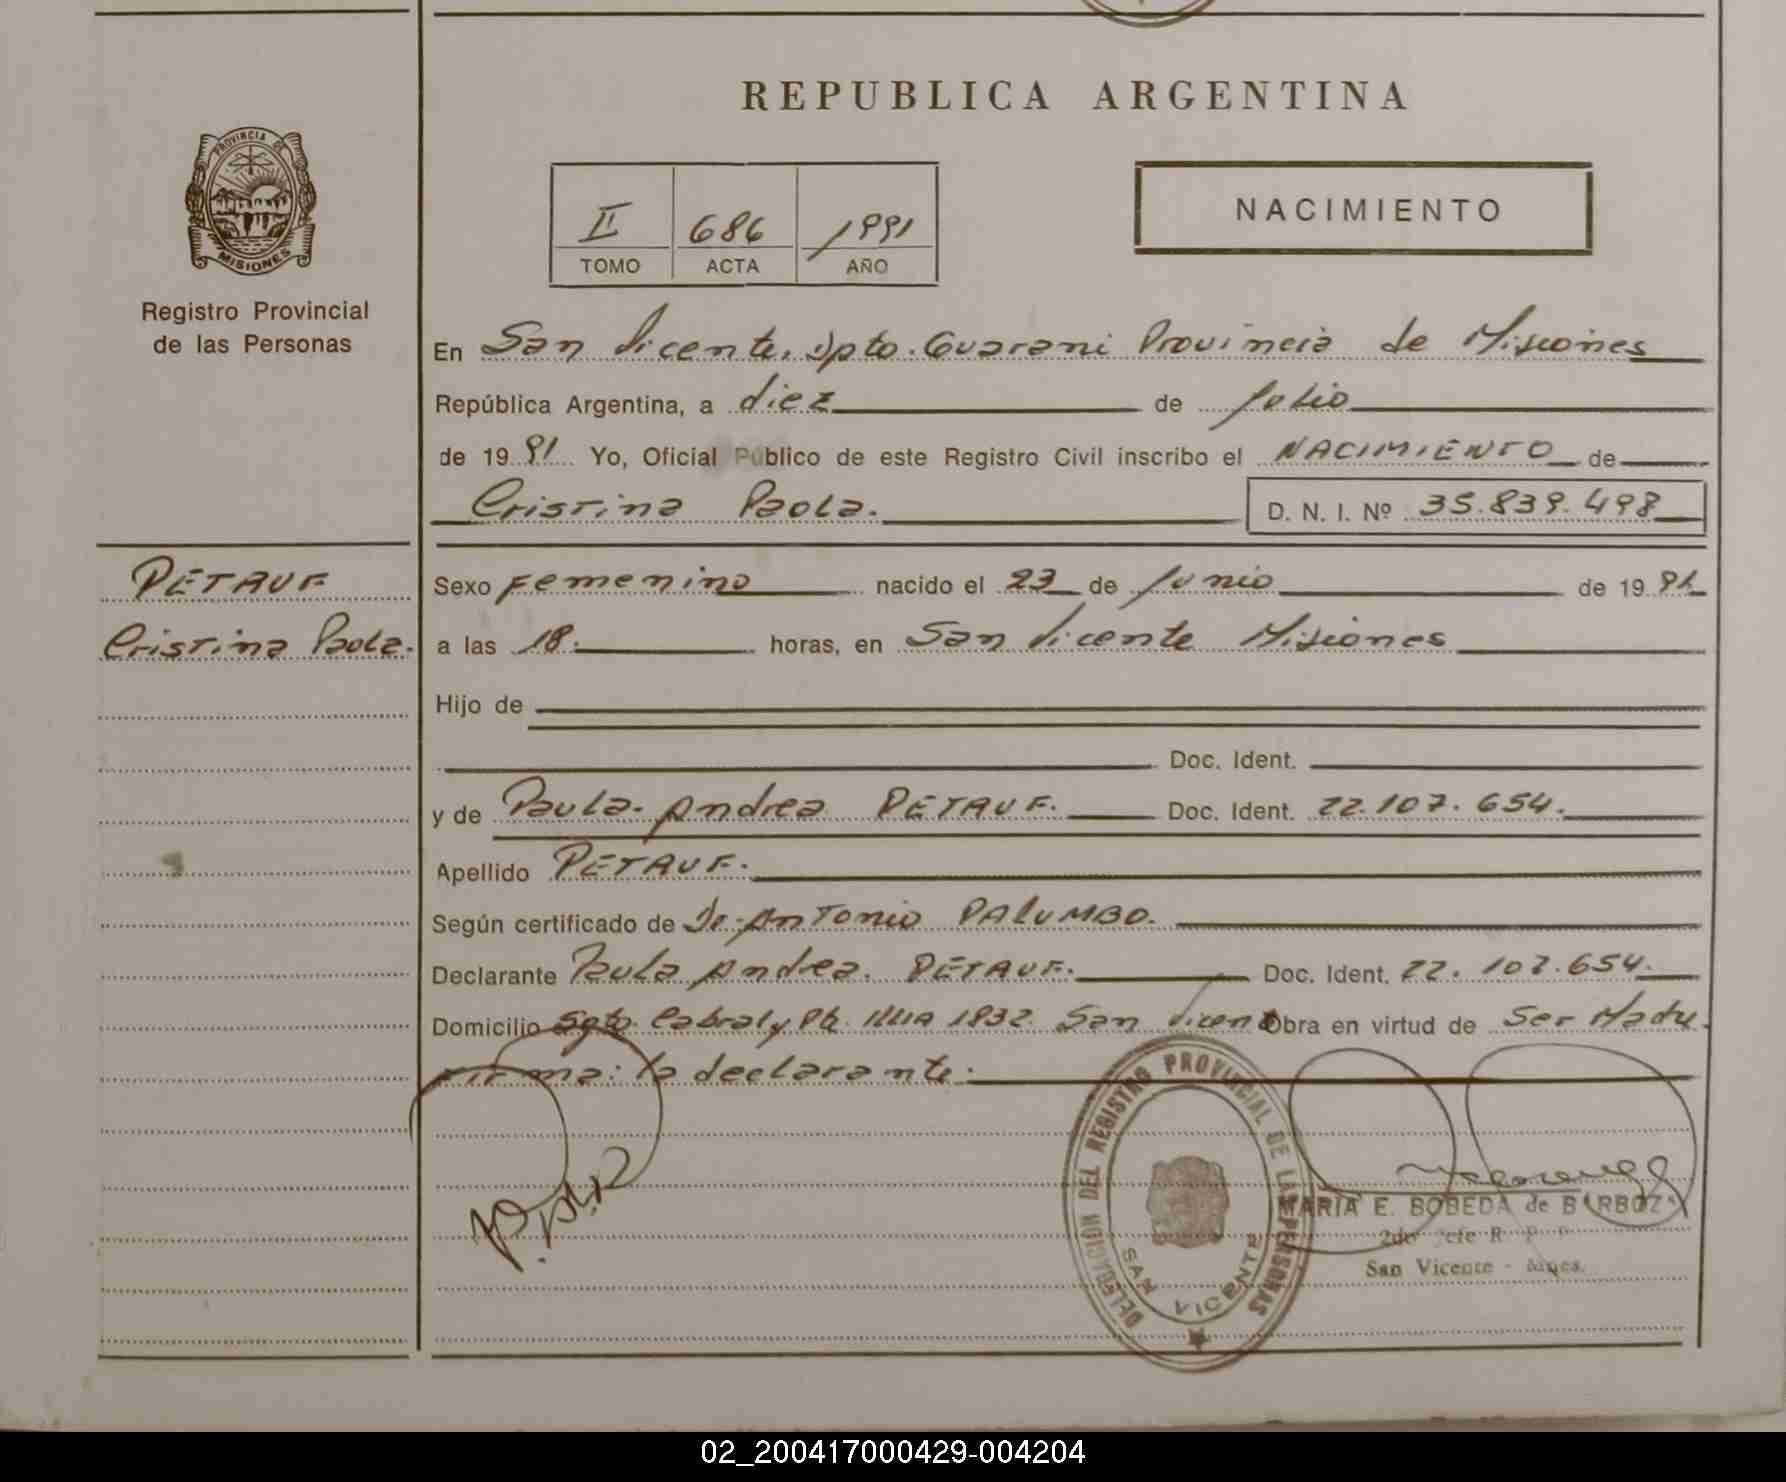 REPUBLICA ARGENTINA
PROVINCIA DE
MISIONES
Registro Provincial
de las Personas
II 686 1991
TOMO ACTA AÑO
NACIMIENTO
En San Vicente, Dpto. Guarani Provincia de Misiones
República Argentina, a diez de Julio
de 1991 Yo, Oficial Público de este Registro Civil inscribo el NACIMIENTO de
Cristina Paola. D. N. I. Nº 35.839.498
PETAUF
Cristina Paola.
Sexo Femenino nacido el 23 de Junio de 1991
a las 18. horas, en San Vicente Misiones
Hijo de
Doc. Ident.
y de Paula Andrea PETAUF. Doc. Ident. 22.107.654.
Apellido PETAUF.
Según certificado de Dr. Antonio PALUMBO.
Declarante Paula Andrea. PETAUF. Doc. Ident. 22.107.654.
Domicilio Sgto. Cabral y Pte. Illia 1832. San Vicente Obra en virtud de Ser Madre.
Firma: la declarante.
DELEGACION DEL REGISTRO PROVINCIAL DE LAS PERSONAS
SAN VICENTE
MARIA E. BOBEDA de BARBOZA
2do Jefe R P P
San Vicente - Mnes.
02_200417000429-004204